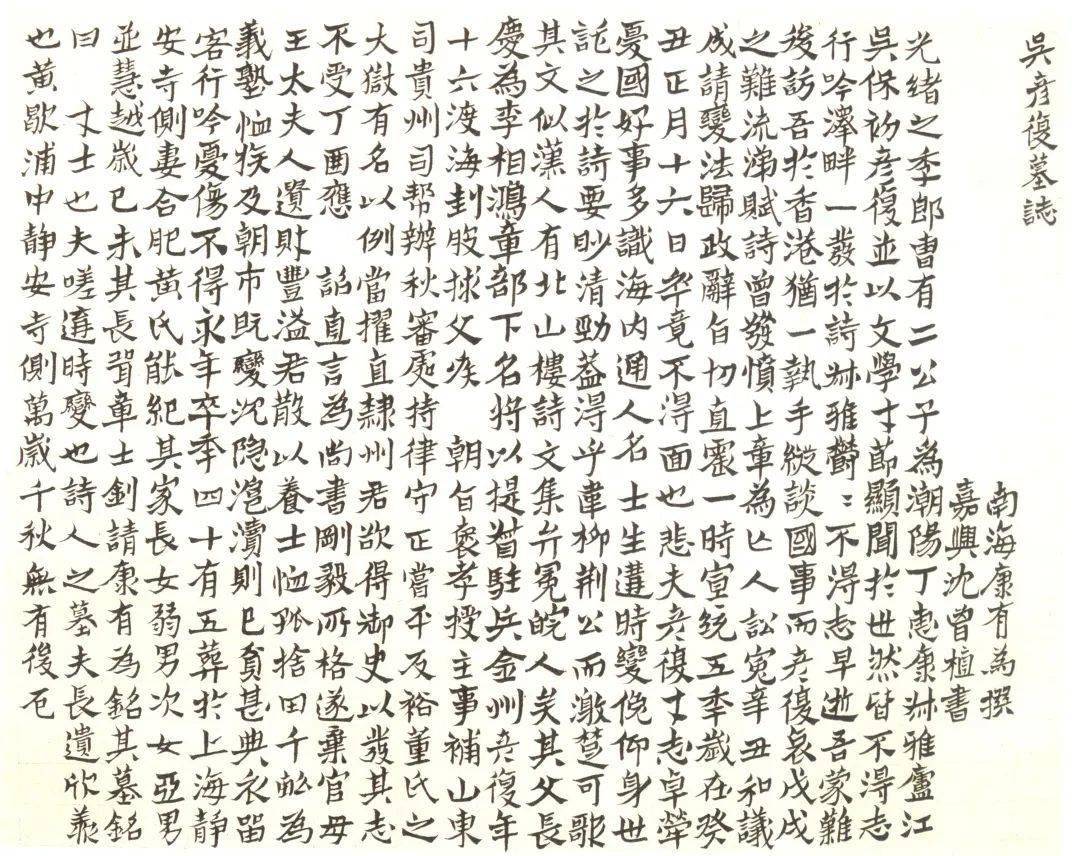 吳彥復墓誌
南海康有為撰
嘉興沈曾植書
光緒之季郎曹有二公子為潮陽丁惠康叔雅廬江
吳保初彥復並以文學才節顯聞於世然皆不得志
行吟澤畔一發於詩叔雅鬱〻不得志早逝吾蒙難
後訪吾於香港猶一執手縱談國事而彥復哀戊戌
之難流涕賦詩曾發憤上章為亡人訟冤辛丑和議
成請變法歸政辭旨切直震一時宣統五季歲在癸
丑正月十六日卒竟不得面也悲夫彥復才志卓犖
憂國好事多識海內通人名士生遘時變俛仰身世
託之於詩要眇清勁蓋得乎韋柳荊公而激楚可歌
其文似漢人有北山樓詩文集弁冕皖人矣其父長
慶為李相鴻章部下名將以提督駐兵金州彥復年
十六渡海刲股捄父疾　朝旨褒孝授主事補山東
司貴州司幫辦秋審處持律守正嘗平反裕董氏之
大獄有名以例當擢直隸州君欲得御史以發其志
不受丁酉應　詔直言為尚書剛毅所格遂棄官毋
王太夫人遺財豐溢君散以養士恤孤捨田千畝為
義塾恤族及朝市既變沈隐滬瀆則已貧甚典衣留
客行吟憂傷不得永年卒季四十有五葬於上海靜
安寺側妻合肥黃氏能紀其家長女弱男次女亞男
並慧越歲己未其長壻章士釗請康有為銘其墓銘
曰　才士也夫嗟遘時變也詩人之墓夫長遺欣羨
也黃歇浦中靜安寺側萬歲千秋無有後厄